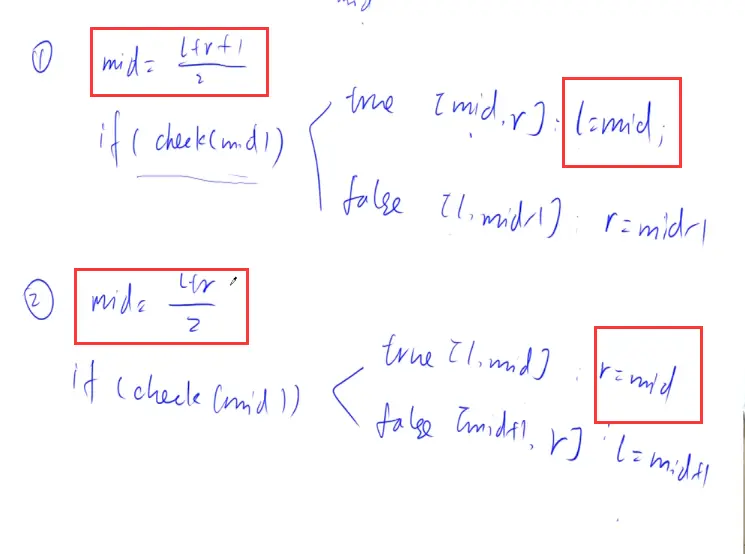 mid
① mid = (l+r+1)/2
if (check(mid)) true [mid, r] : l=mid;
false [l, mid-1] : r=mid-1
② mid = (l+r)/2
if (check(mid)) true [l, mid] : r=mid
false [mid+1, r] : l=mid+1